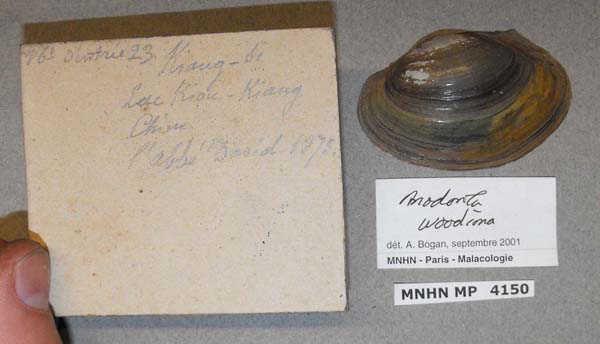 No. d'entrée 23
Kiang-Si
Lac Kiou-Kiang
Chine
l'abbé David 1875.
Anodonta
woodiana
dét. A. Bogan, septembre 2001
MNHN - Paris - Malacologie
MNHN MP 4150